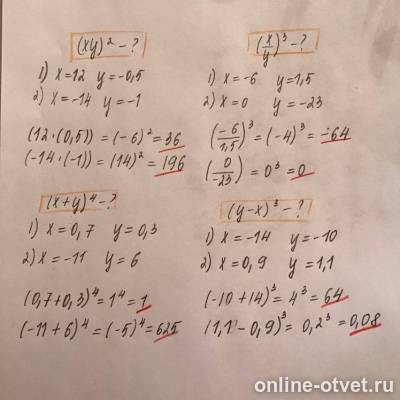 (xy)² - ?
1) x=12 y=-0,5
2) x=-14 y=-1
(12·(0,5))=(-6)²=36
(-14·(-1))=(14)²=196
(x/y)³ - ?
1) x=-6 y=1,5
2) x=0 y=-23
(-6/1,5)³=(-4)³=-64
(0/-23)=0³=0
(x+y)⁴ - ?
1) x=0,7 y=0,3
2) x=-11 y=6
(0,7+0,3)⁴=1⁴=1
(-11+6)⁴=(-5)⁴=625
(y-x)³ - ?
1) x=-14 y=-10
2) x=0,9 y=1,1
(-10+14)³=4³=64
(1,1-0,9)³=0,2³=0,08
online-otvet.ru